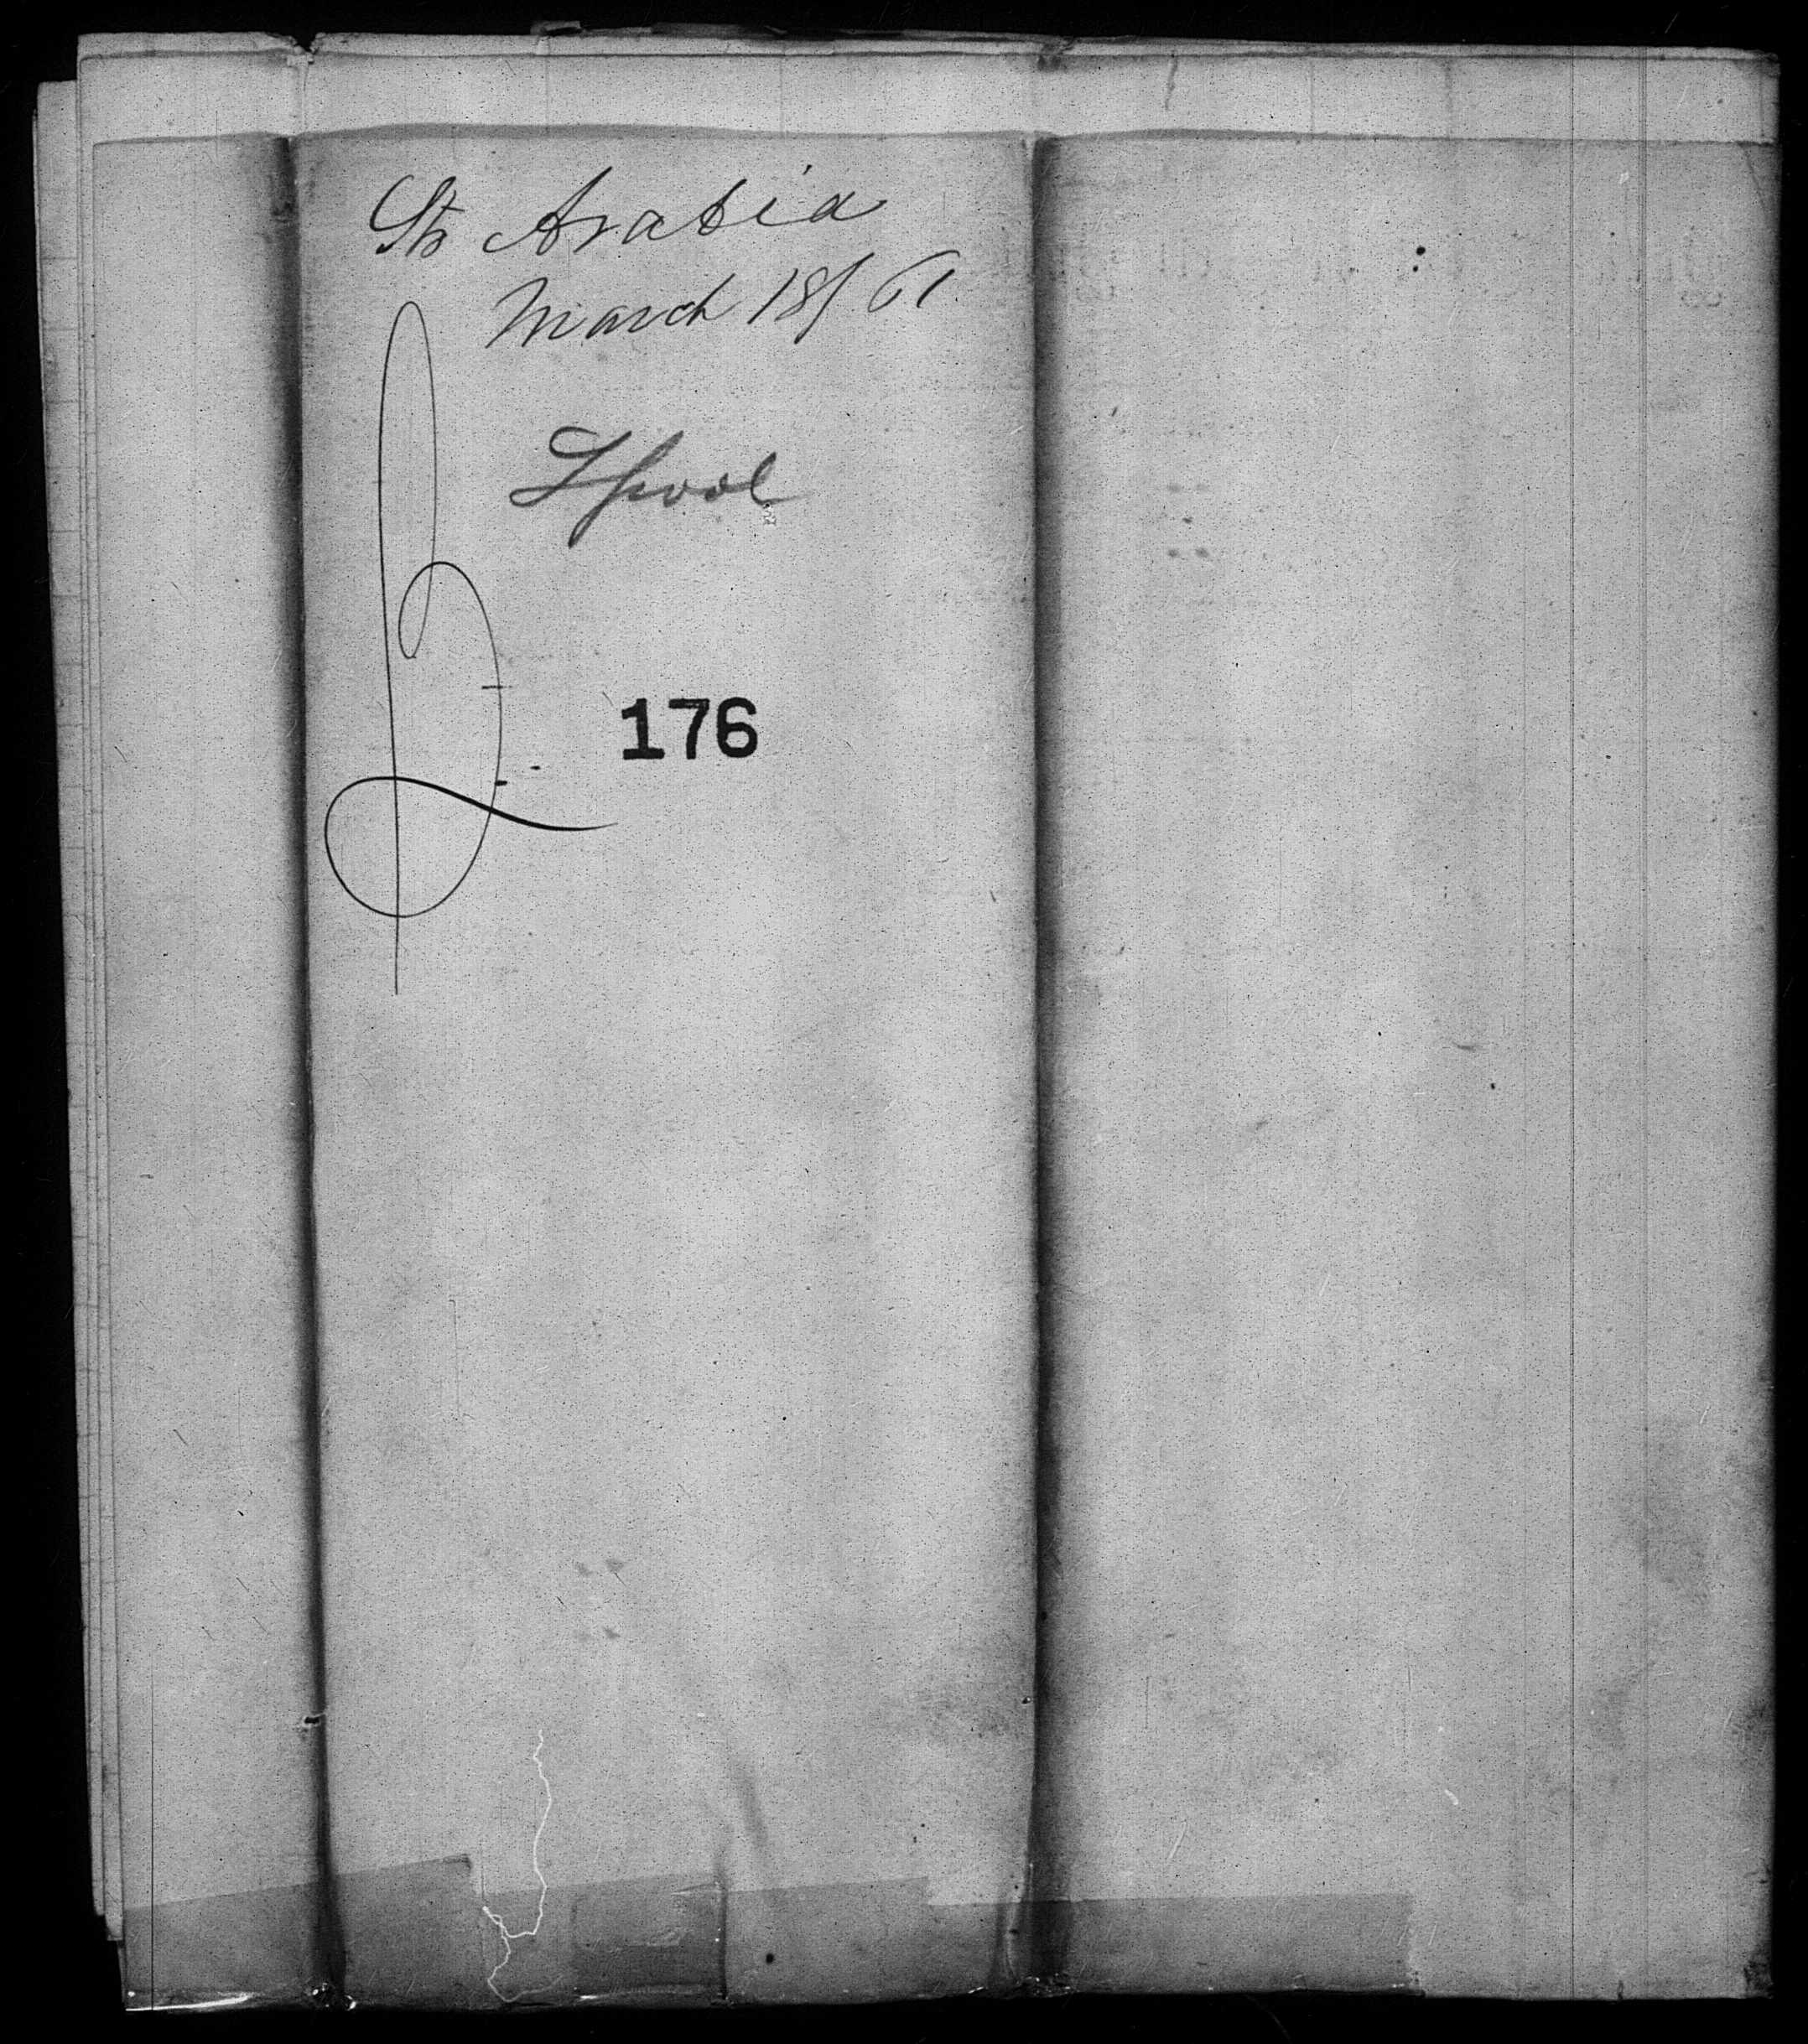 Str Arabia
March 18/61
Lpool
176